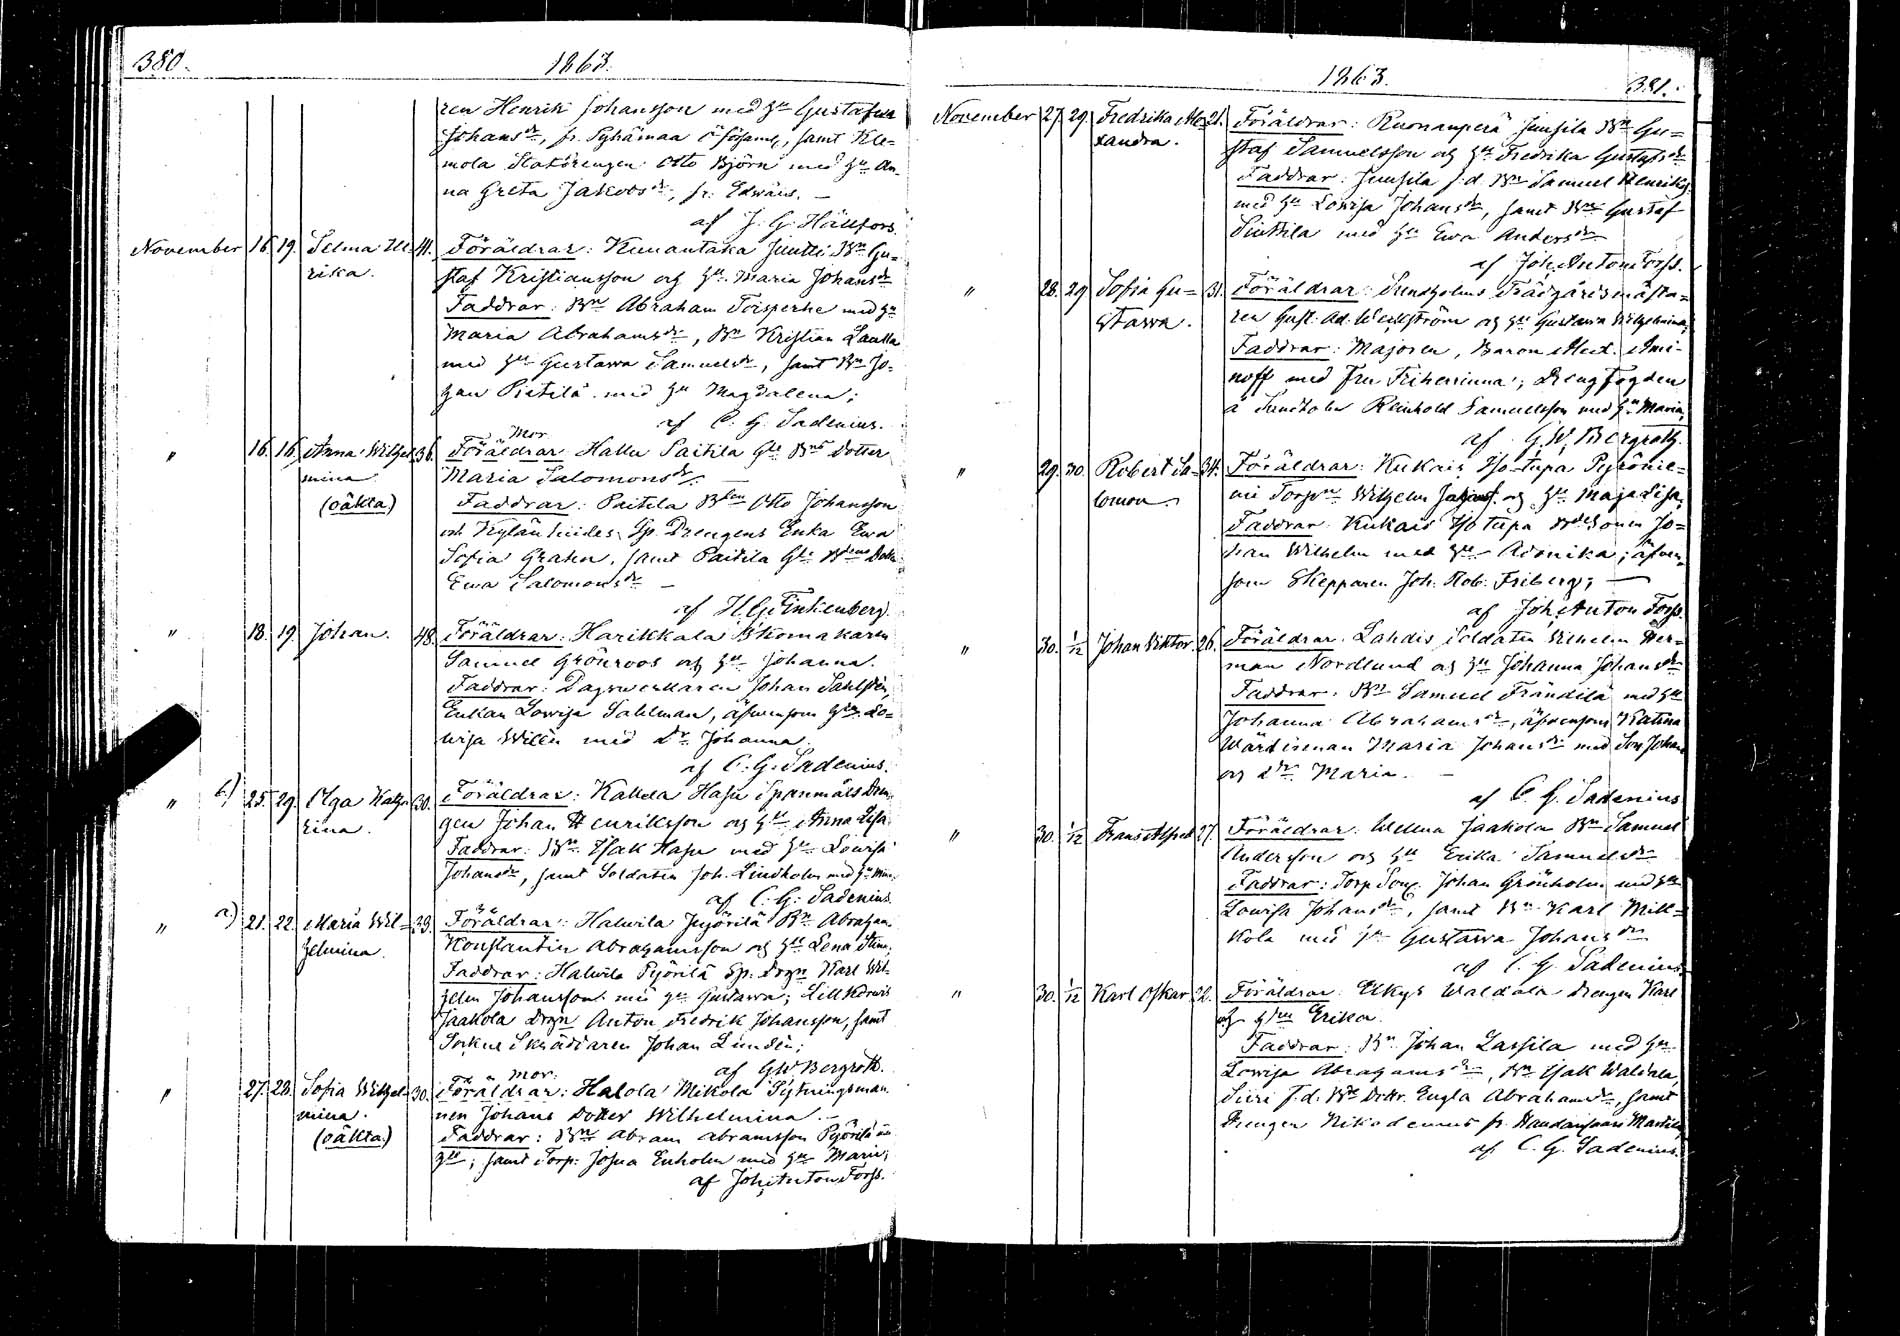 380.
1863.
ren Henrik Johansson med h. Gustafva
Johansdr, fr. samt Kle-
mola Statdrengen Otto Björn med hu An-
na Greta Jakobsdr, fr. —
af J. G. Hällfors
November 16. 19. Selma Ul- 41. Föräldrar: Kunantaka Juntti Bn Gu-
rika. staf Kristiansson och hu Maria Johansdr
Faddrar: Bn Abraham med hu
Maria Abrahamsdr, Bn Kristian Laulla
med hu Gustava Samuelsdr, samt Bn Jo-
han Pietilä med hu Magdalena;
af C. G. Sadenius.
mor
" 16. 16. Anna Wilhel- 36. Föräldrar Hallu Paitila Gle Bns dotter
mina Maria Salomonsdr. —
(oäkta) Faddrar: Paitila Bden Otto Johansson
och Sp. Drengens Enka Ewa
Sofia Grahn, samt Paitila Gle Bdens Dotter
Ewa Salomonsdr —
af H. G. Finkenberg.
" 18. 19. Johan. 48. Föräldrar: Harikkala Skomakaren
Samuel Grönroos och hu Johanna.
Faddrar: Dagsverkaren Johan Sahlsten,
Enkan Lovisa Sahlman, äfvensom Lo-
visa Willen med dr Johanna.
af C. G. Sadenius.
" b.) 25. 29. Olga Katha- 30. Föräldrar: Kallela Hasu Spanmåls Dren-
rina. gen Johan Henriksson och hu Anna Lisa
Faddrar: Bn Isak Hasu med hu Lovisa
Johansdr, samt Soldaten Joh. Lindholm med hu
af C. G. Sadenius.
" a.) 21. 22. Maria Wil- 23. Föräldrar: Halvila Bn Abraham
helmina. Konstantin Abrahamsson och hu Lena Stina,
Faddrar: Halvila Pyörilä Sp. Drgn Karl Wil-
helm Johansson med hu Gustava;
Jaakola Drgn Anton Fredrik Johansson, samt
Sockne Skräddaren Johan Lunden;
af GW Bergroth.
mor
" 27. 28. Sofia Wilhel- 30. Föräldrar: Halola Mikola Sytningsman
mina. nen Johans dotter Wilhelmina. —
(oäkta) Faddrar: Bn Abram Abramsson Pyörilä
hu; samt Torp. Josua Enholm med hu Maria;
af Joh. Anton Forss.
1863.
381.
November 27. 29. Fredrika Ale- 21. Föräldrar: Ruonanperä Junsila Bn Gu-
xandra. staf Samuelsson och hu Fredrika Gustafsdr
Faddrar: Junsila f.d. Bn Samuel Henriks.
med hu Lovisa Johansdr, samt Bn Gustaf
Siuttila med hu Ewa Andersdr
af Joh. Anton Forss.
" 28. 29 Sofia Gu- 31. Föräldrar: Sundholms Trädgårdsmästa-
stava. ren Gust. Ad. Weckström och hu Gustava Wilhelmina;
Faddrar: Majoren, Baron Alex. Ami-
noff med Fru Friherrinna; Drengfogden
å Sundholm Reinhold Samuelsson med hu Maria;
af G. W. Bergroth.
" 29. 30. Robert Sa- 34. Föräldrar: Kukais Iso tupa Pyrönie-
lomon. mi Torpn Wilhelm och hu Maja Lisa;
Faddrar: Kukais Iso tupa Bdesonen Jo-
han Wilhelm med hu Adonika; äfven-
som Skepparen Joh. Rob. Friberg; —
af Joh. Anton Forss.
" 30. 1/12 Johan Viktor. 26. Föräldrar: Lahdis Soldaten Wilhelm Her-
man Nordlund och hu Johanna Johansdr
Faddrar: Bn Samuel Frändilä med hu
Johanna Abrahamsdr, äfvensom Katina
Wärdinnan Maria Johansdr med Son Johan
och dr Maria. —
af C. G. Sadenius
" 30. 1/12 Frans Alfred 27. Föräldrar: Uellua Jaakola Bn Samuel
Andersson och hu Erika Samuelsdr
Faddrar: Torp Son Johan Grönholm med hu
Lovisa Johansdr, samt Bn Karl Mik-
kola med hu Gustava Johansdr
af C. G. Sadenius.
" 30. 1/12 Karl Oskar 22. Föräldrar: Elkys Waldala Drengen Karl
och hu Erika.
Faddrar: Bn Johan Lassila med hu
Lovisa Abrahamsdr, Bn Isak Waldala,
Siiri f.d. Bn Dottr. Engla Abrahamsdr, samt
Drengen Nikodemus fr. Martila
af C. G. Sadenius.